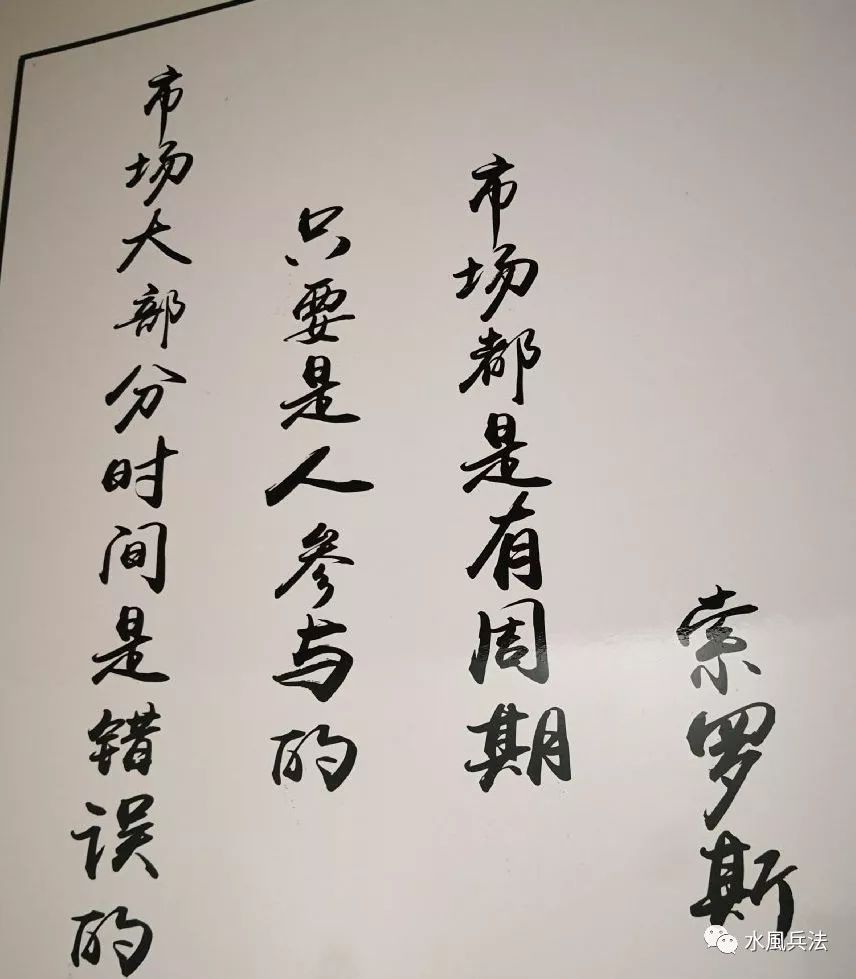 市场大部分时间是错误的
只要是人参与的
市场都是有周期
索罗斯
水風兵法